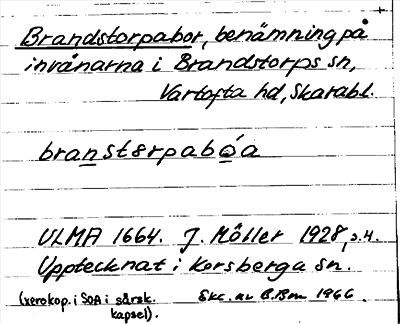 Brandstorpabor, benämning på
invånarna i Brandstorps sn,
Vartofta hd, Skarabl.
branstørpabóa
ULMA 1664. J. Möller 1928, s.4.
Upptecknat i Korsberga sn.
(xerokop. i SOA i särsk. Skr. av B.Bm 1966.
kapsel).